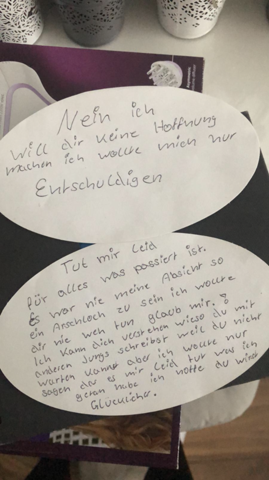 Nein ich
will dir keine Hoffnung
machen ich wollte mich nur
Entschuldigen
Tut mir Leid
für alles was passiert ist.
Es war nie meine Absicht so
ein Anschloch zu sein ich wollte
dir nie weh tun glaub mir.
Ich kann dich verstehen wieso du mit
anderen Jungs schreibst weil du nicht
warten kannst aber ich wollte nur
sagen das es mir Leid tut was ich
getan habe ich hoffe du wirst
Glücklicher.